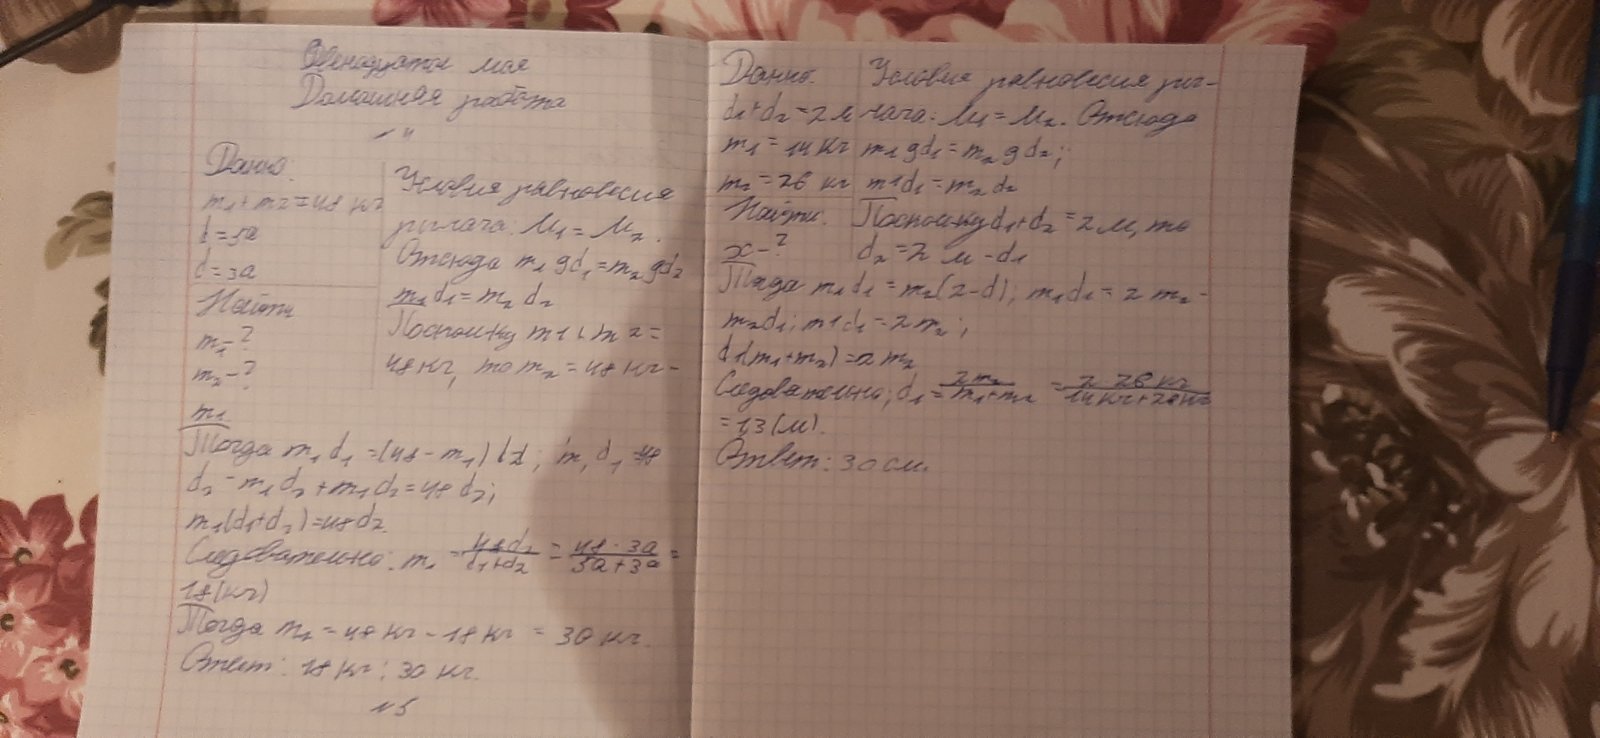 Двенадцатое мая
Домашняя работа
№4
Дано:
m₁+m₂=48 кг
l=5a
d=3a
Найти
m₁-?
m₂-?
Условия равновесия
рычага: M₁=M₂.
Отсюда m₁gd₁=m₂gd₂
m₁d₁=m₂d₂
Поскольку m1+m2=
48кг, то m₂=48кг-
m₁
Тогда m₁d₁=(48-m₁)d2; m₁d₁=48
d₂-m₁d₂+m₁d₂=48d₂;
m₁(d₁+d₂)=48d₂.
Следовательно: m₁=48d₂/d₁+d₂=48·3a/5a+3a=
18(кг)
Тогда m₂=48кг-18кг=30кг.
Ответ: 18кг; 30кг.
№5
Дано:
d₁+d₂=2м
m₁=14кг
m₂=26кг
Найти:
x-?
Условия равновесия ры-
чага: M₁=M₂. Отсюда
m₁gd₁=m₂gd₂;
m1d₁=m₂d₂
Поскольку d₁+d₂=2м, то
d₂=2м-d₁
Тогда m₁d₁=m₂(2-d); m₁d₁=2m₂-
m₂d₁; m1d₁=2m₂;
d1(m₁+m₂)=2m₂
Следовательно; d₁=2m₂/m₁+m₂=2·26кг/14кг+26кг
=1,3(м).
Ответ: 30см.